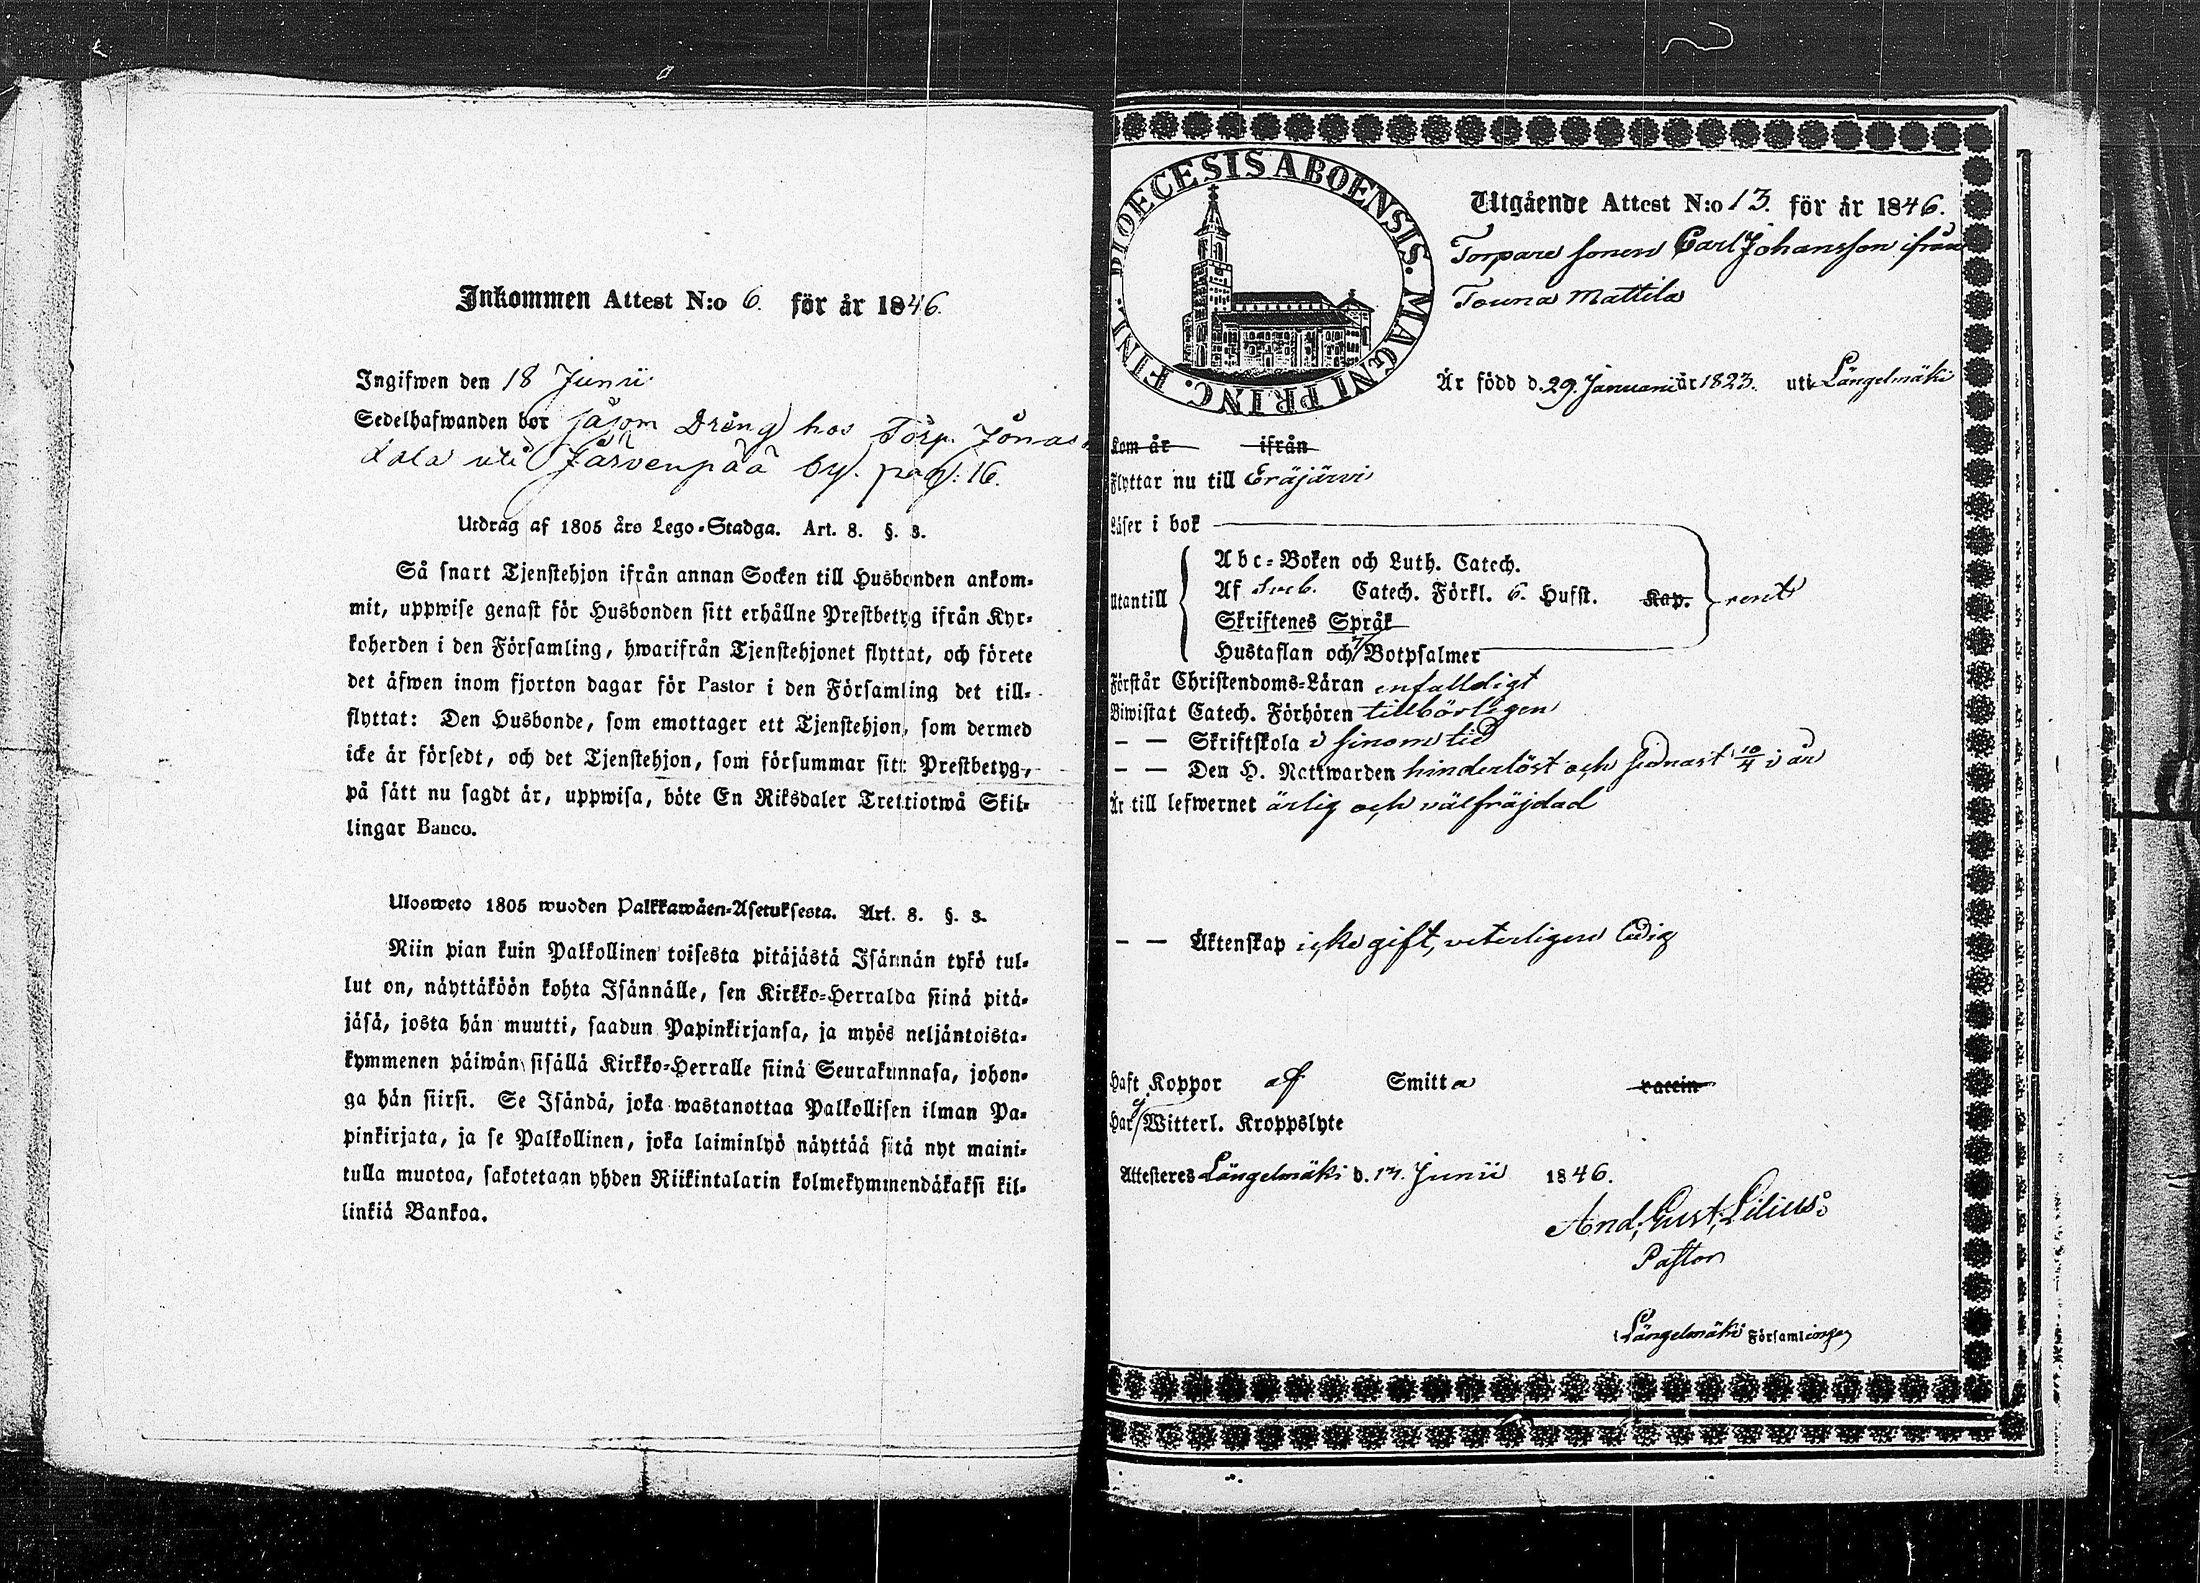 Inkommen Attest N:o 6. för år 1846.
Ingifwen den 18 Junii
Sedelhafwanden bor såsom Dräng hos Torp. Jonas
Lala uti Järvenpää by. pag: 16.
Utdrag af 1805 års Lego-Stadga. Art. 8. §. 3.
Så snart Tjenstehjon ifrån annan Socken till Husbonden ankom-
mit, uppwise genast för Husbonden sitt erhållne Prestbetyg ifrån Kyr-
koherden i den Församling, hwarifrån Tjenstehjonet flyttat, och förete
det äfwen inom fjorton dagar för Pastor i den Församling det till-
flyttat: Den Husbonde, som emottager ett Tjenstehjon, som dermed
icke är försedt, och det Tjenstehjon, som försummar sitt Prestbetyg,
på sätt nu sagdt är, uppwisa, böte En Riksdaler Trettiotwå Skil-
lingar Banco.
Ulosweto 1805 wuoden Palkkawäen-Asetuksesta. Art. 8. §. 3.
Niin pian kuin Palkollinen toisesta pitäjästä Isännän tykö tul-
lut on, näyttäköön kohta Isännälle, sen Kirkko-Herralda siinä pitä-
jäsä, josta hän muutti, saadun Papinkirjansa, ja myös neljäntoista-
kymmenen päiwän sisällä Kirkko-Herralle siinä Seurakunnasa, johon-
ga hän siirsi. Se Isändä, joka wastanottaa Palkollisen ilman Pa-
pinkirjata, ja se Palkollinen, joka laiminlyö näyttää sitä nyt maini-
tulla muotoa, sakotetaan yhden Riikintalarin kolmekymmendäkaksi kil-
linkiä Bankoa.
DIOECESIS ABOENSIS. MAGNI PRINC. FINL.
Utgående Attest N:o 13. för år 1846.
Torpare sonen Carl Johansson ifrån
Touna Mattila
Är född d. 29. Januarii år 1823. uti Längelmäki
Kom år ifrån
Flyttar nu till Eräjärvi
Läser i bok
Abc-Boken och Luth. Catech.
Utantill Af Sveb. Catech. Förkl. 6. Hufst. Kap. rent
Skriftenes Språk
Hustaflan och 7 Botpsalmer
Förstår Christendoms-Läran enfalldigt
Biwistat Catech. Förhören tillbörligen
– – Skriftskola i sinom tid
– – Den H. Nattwarden hinderlöst och sednast 10/4 i år
Är till lefwernet ärlig och välfräjdad
– – Äktenskap icke gift, veterligen ledig
Haft Koppor af Smitta vaccin
Har ej Witterl. Kroppslyte
Attesteres Längelmäki d. 14. Junii 1846.
And, Gust, Lilius
Pastor
Längelmäki Församlings